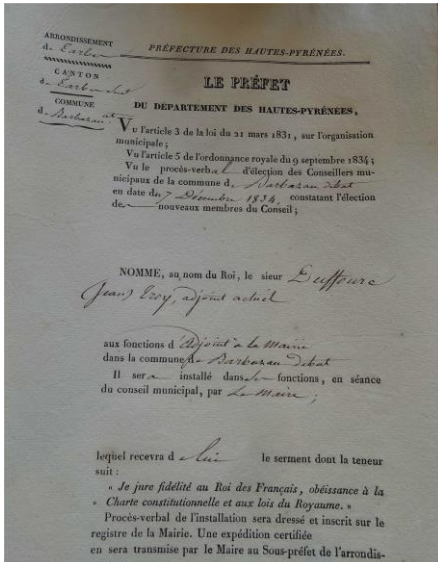 ARRONDISSEMENT
de Tarbes
CANTON
de Tarbes Sud
COMMUNE
de Barbazan
PRÉFECTURE DES HAUTES-PYRÉNÉES.
LE PRÉFET
DU DÉPARTEMENT DES HAUTES-PYRÉNÉES,
Vu l'article 3 de la loi du 21 mars 1831, sur l'organisation
municipale;
Vu l'article 5 de l'ordonnance royale du 9 septembre 1834;
Vu le procès-verbal d'élection des Conseillers mu-
nicipaux de la commune de Barbazan debat
en date du 7 Décembre 1834, constatant l'élection
de nouveaux membres du Conseil;
NOMME, au nom du Roi, le sieur Duffourc
(Jean) Troy, adjoint actuel
aux fonctions d'adjoint à la Mairie
dans la commune de Barbazan debat
Il sera installé dans ses fonctions, en séance
du conseil municipal, par Le Maire;
lequel recevra de lui le serment dont la teneur
suit :
« Je jure fidélité au Roi des Français, obéissance à la
« Charte constitutionnelle et aux lois du Royaume. »
Procès-verbal de l'installation sera dressé et inscrit sur le
registre de la Mairie. Une expédition certifiée
en sera transmise par le Maire au Sous-préfet de l'arrondis-